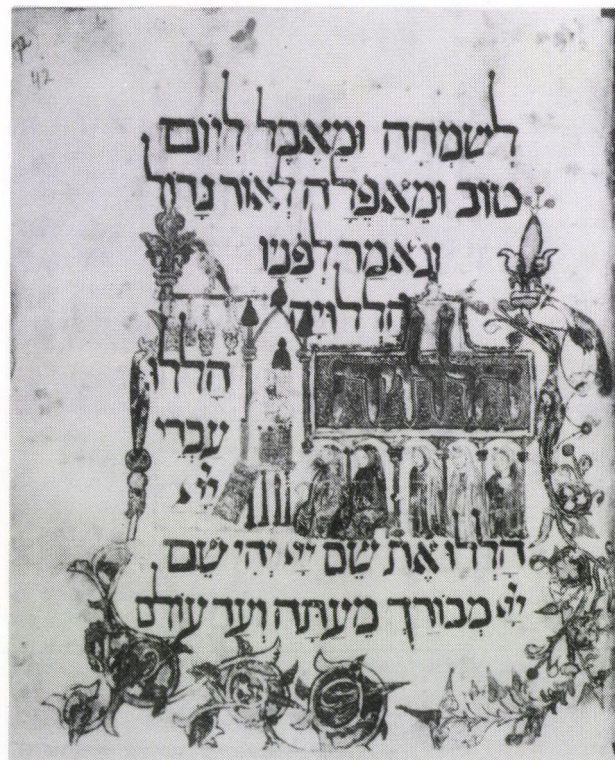 42
לְשִׂמְחָה וּמֵאֵבֶל לְיוֹם
טוֹב וּמֵאֲפֵלָה לְאוֹר גָּדוֹל
וְנֹאמַר לְפָנָיו
הַלְלוּיָהּ
הַלְלוּיָהּ
הַלְלוּ
עַבְדֵי
יְיָ
הַלְלוּ אֶת שֵׁם יְיָ יְהִי שֵׁם
יְיָ מְבוֹרָךְ מֵעַתָּה וְעַד עוֹלָם